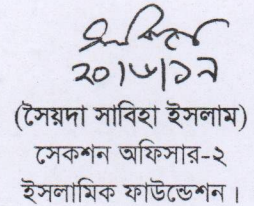 ২০/৬/১৯
(সৈয়দা সাবিহা ইসলাম)
সেকশন অফিসার-২
ইসলামিক ফাউন্ডেশন।